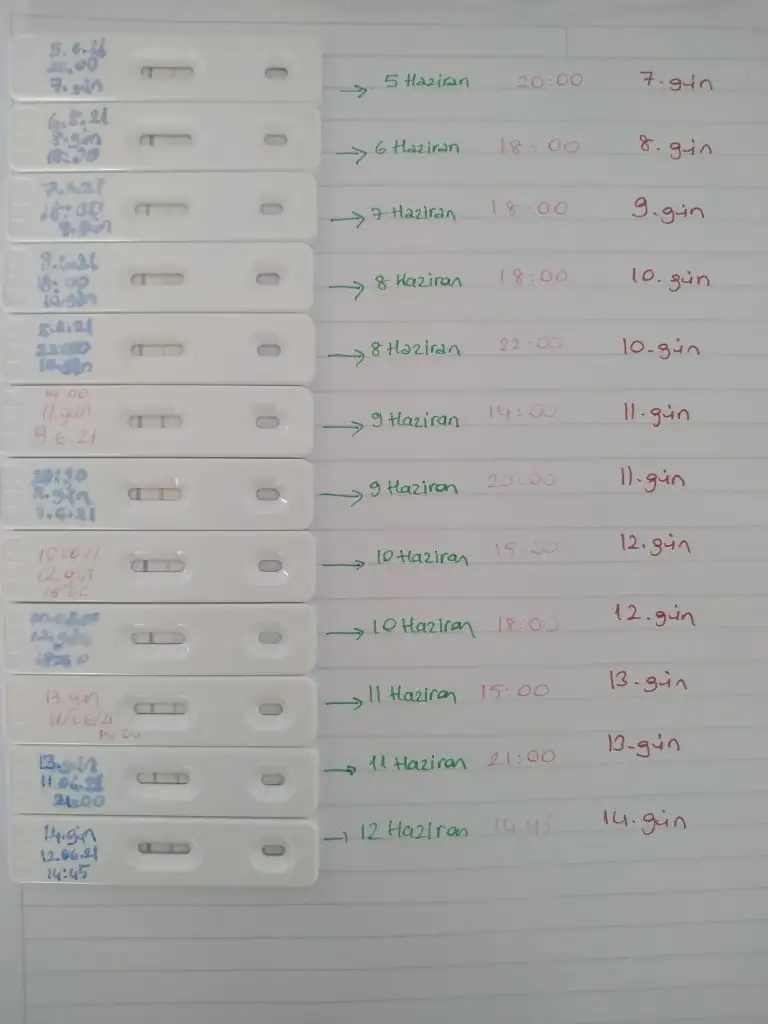 5.6.21
7.gün
→ 5 Haziran 20:00 7.gün
8.gün
→ 6 Haziran 18:00 8.gün
7.6.21
18:00
→ 7 Haziran 18:00 9.gün
8.6.21
18:00
10.gün
→ 8 Haziran 18:00 10.gün
8.6.21
22:00
10.gün
→ 8 Haziran 22:00 10.gün
14:00
11.gün
9.6.21
→ 9 Haziran 14:00 11.gün
→ 9 Haziran 11.gün
12.gün
→ 10 Haziran 15:00 12.gün
12.gün
→ 10 Haziran 18:00 12.gün
13.gün
11/06/21
→ 11 Haziran 15:00 13.gün
13.gün
11.06.21
21:00
→ 11 Haziran 21:00 13.gün
14.gün
12.06.21
14:45
→ 12 Haziran 14:45 14.gün